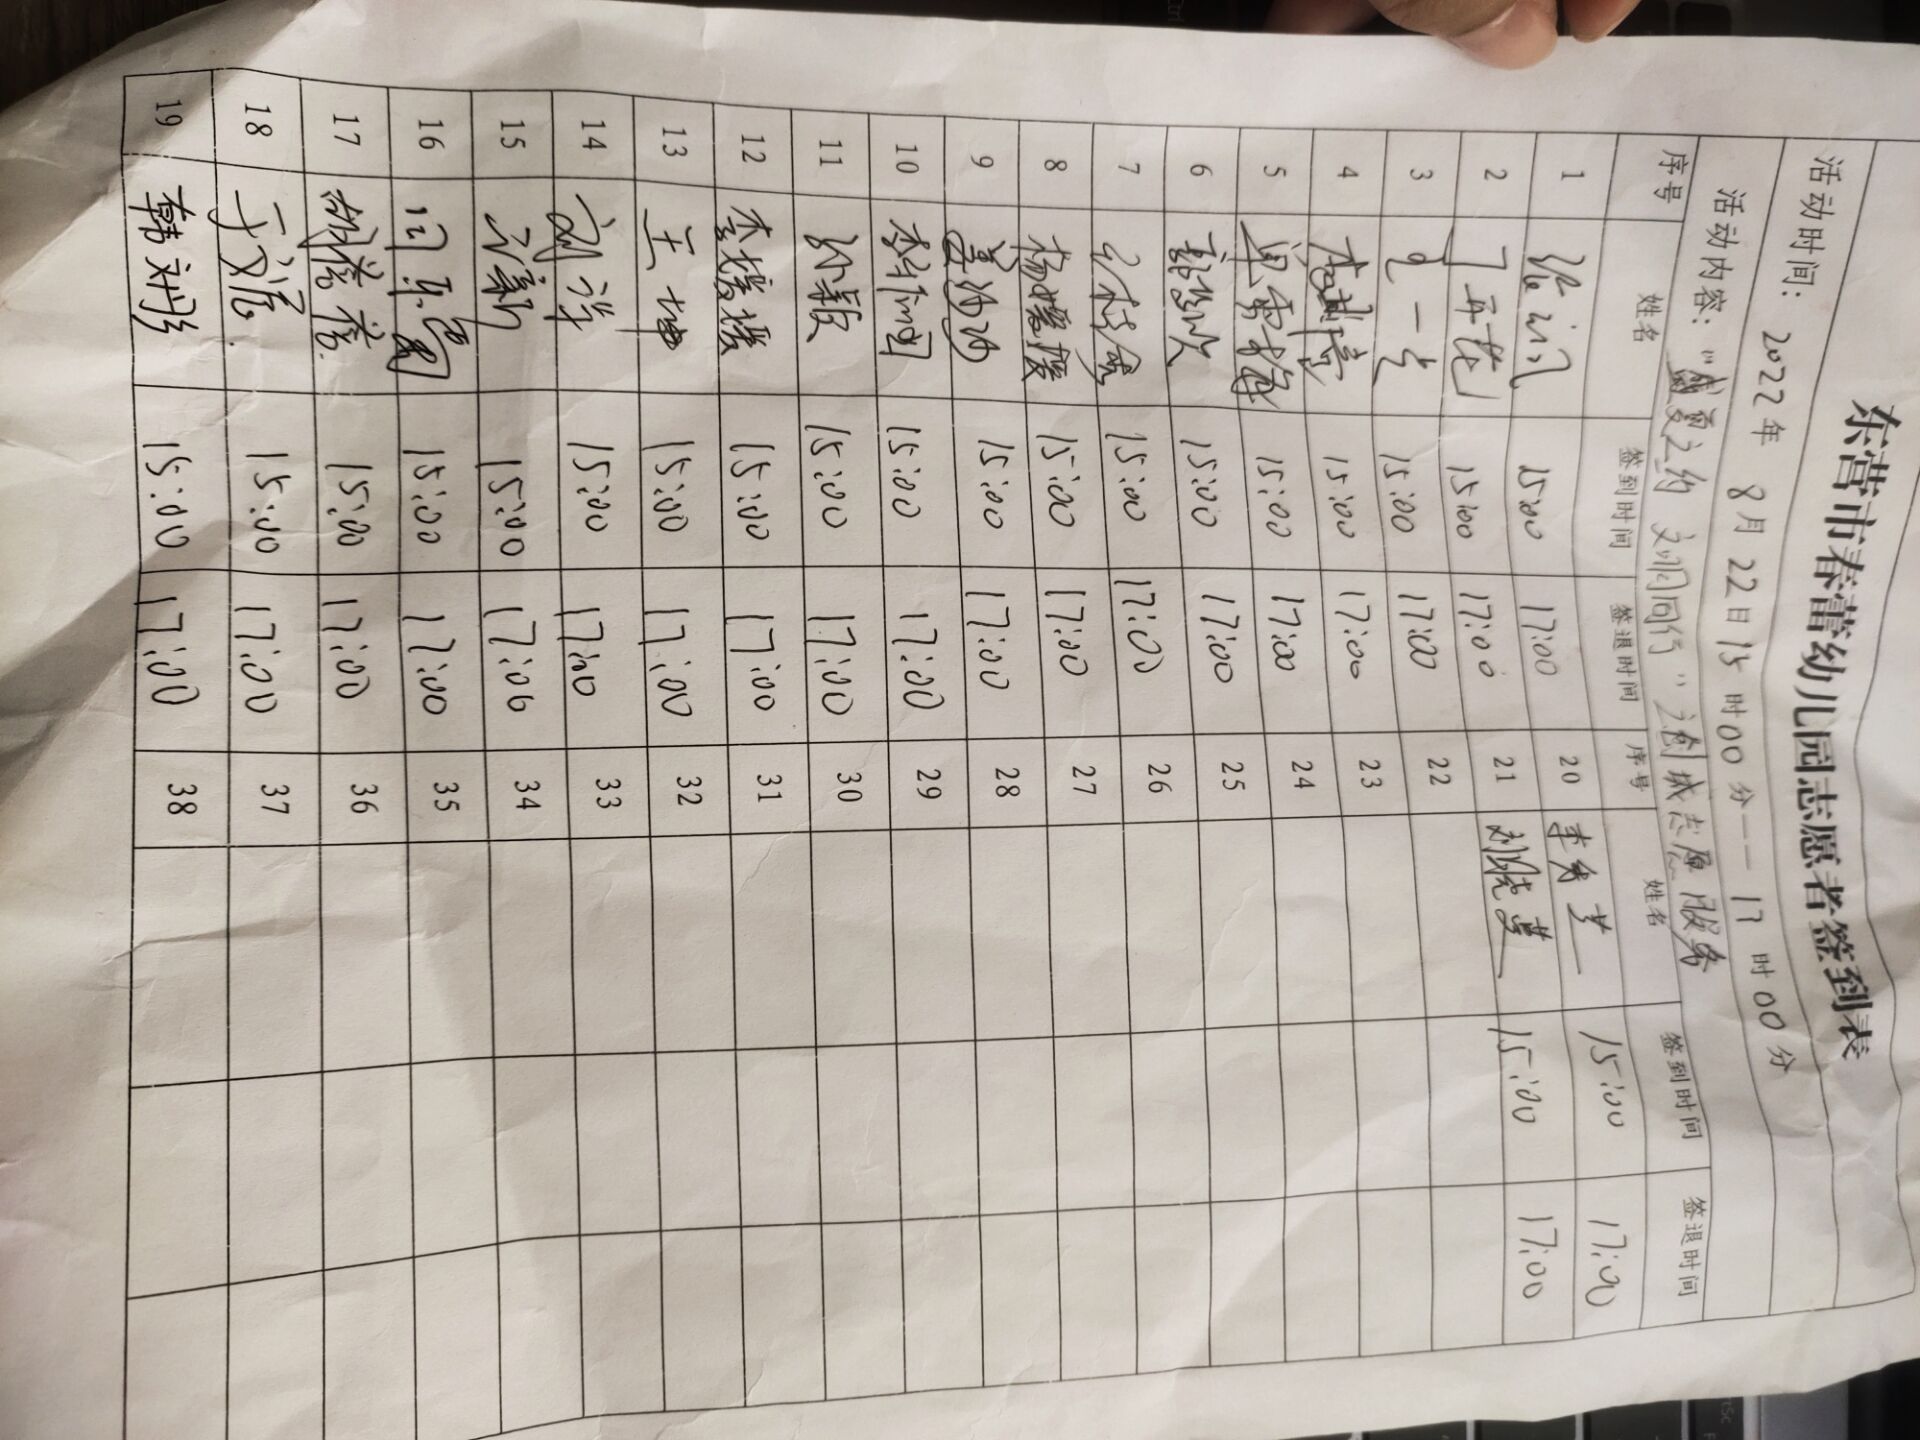 东营市春蕾幼儿园志愿者签到表
活动时间： 2022年 8月22日15时00分——17时00分
活动内容：“盛夏之约 文明同行”之创城志愿服务
序号 姓名 签到时间 签退时间 序号 姓名 签到时间 签退时间
1 15:00 17:00 20 李秀芝 15:00 17:00
2 丁再花 15:00 17:00 21 刘晓燕 15:00 17:00
3 15:00 17:00 22
4 15:00 17:00 23
5 15:00 17:00 24
6 15:00 17:00 25
7 15:00 17:00 26
8 杨媛媛 15:00 17:00 27
9 姜沙沙 15:00 17:00 28
10 15:00 17:00 29
11 孙颖 15:00 17:00 30
12 李媛媛 15:00 17:00 31
13 王坤 15:00 17:00 32
14 刘萍 15:00 17:00 33
15 15:00 17:00 34
16 15:00 17:00 35
17 15:00 17:00 36
18 15:00 17:00 37
19 韩对彩 15:00 17:00 38